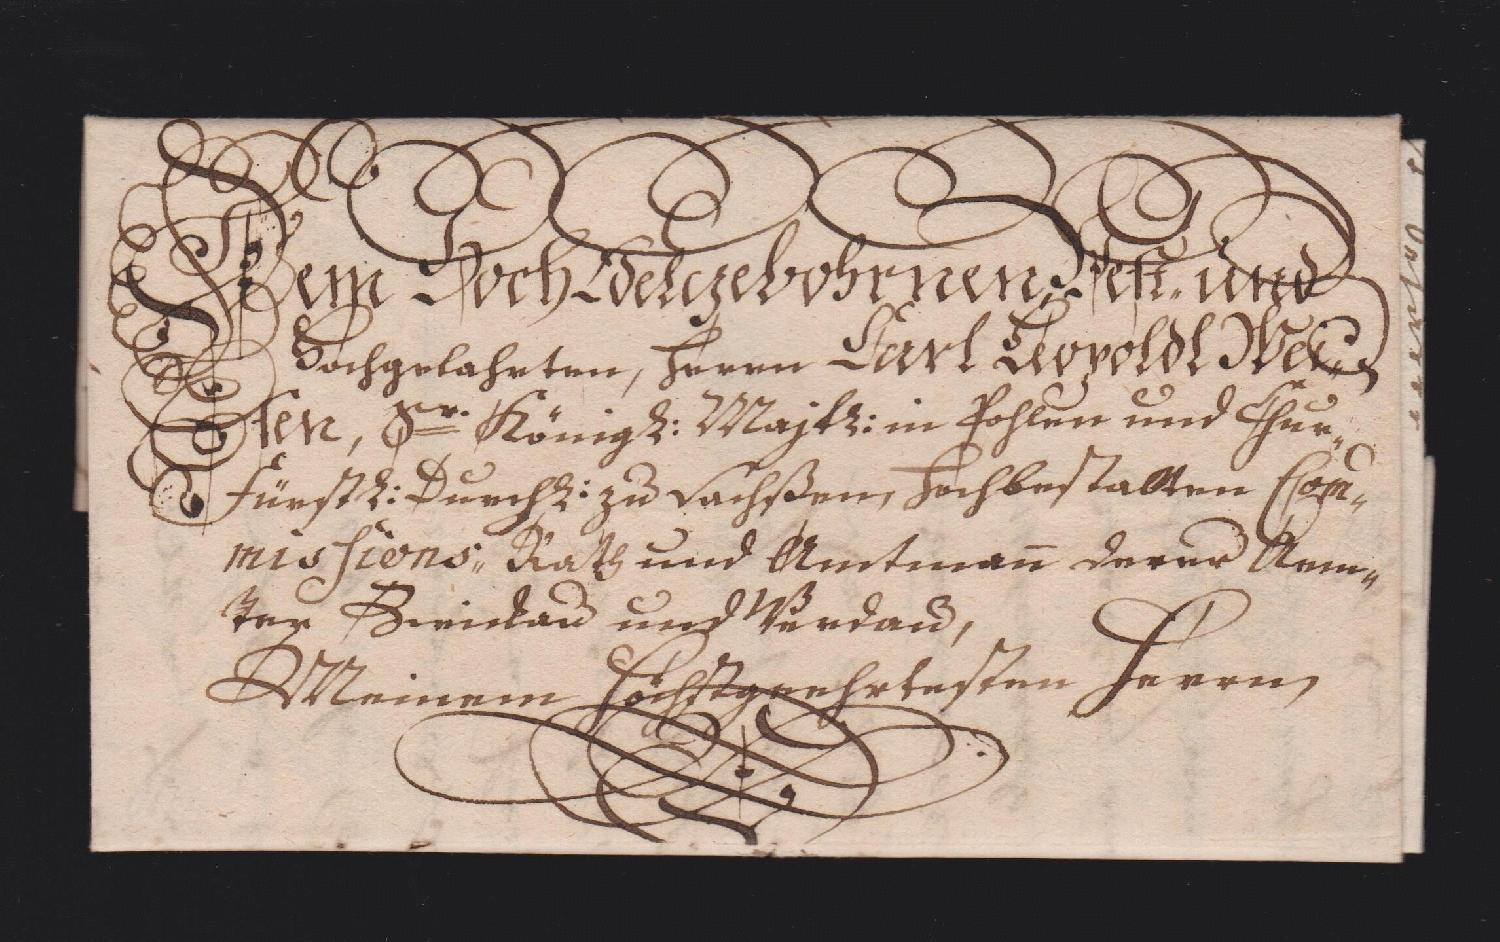 Dem HochEdelgebohrnen, Vest- und
Hochgelahrten, Herrn Carl Leopoldt Wei-
sen, Sr. Königl: Majtl: in Pohlen und Chur-
Fürstl: Durchl: zu Sachßen, Hochbestallten Com-
missions-Rath und Amtman̄ derer Aem-
ter Zwickau und Werdau,
Meinem Höchstgeehrtesten Herrn,